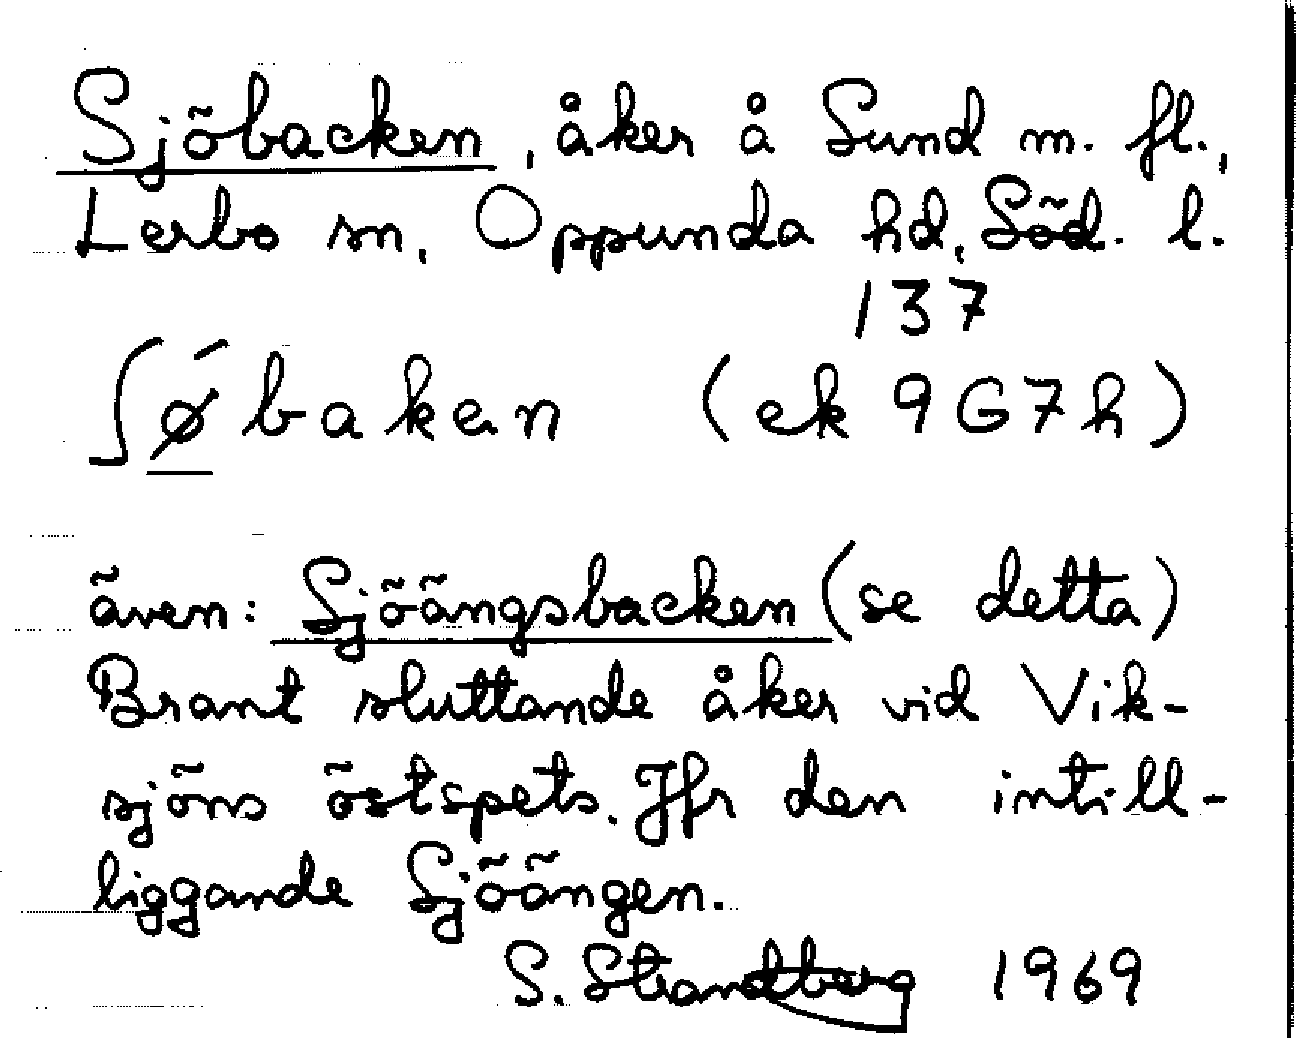 Sjöbacken, åker å Sund m. fl.,
Lerbo sn, Oppunda hd, Söd. l.
137
ʃǿbaken (ek 9G7h)
även: Sjöängsbacken (se detta)
Brant sluttande åker vid Vik-
sjöns östspets. Jfr den intill-
liggande Sjöängen.
S. Strandberg 1969